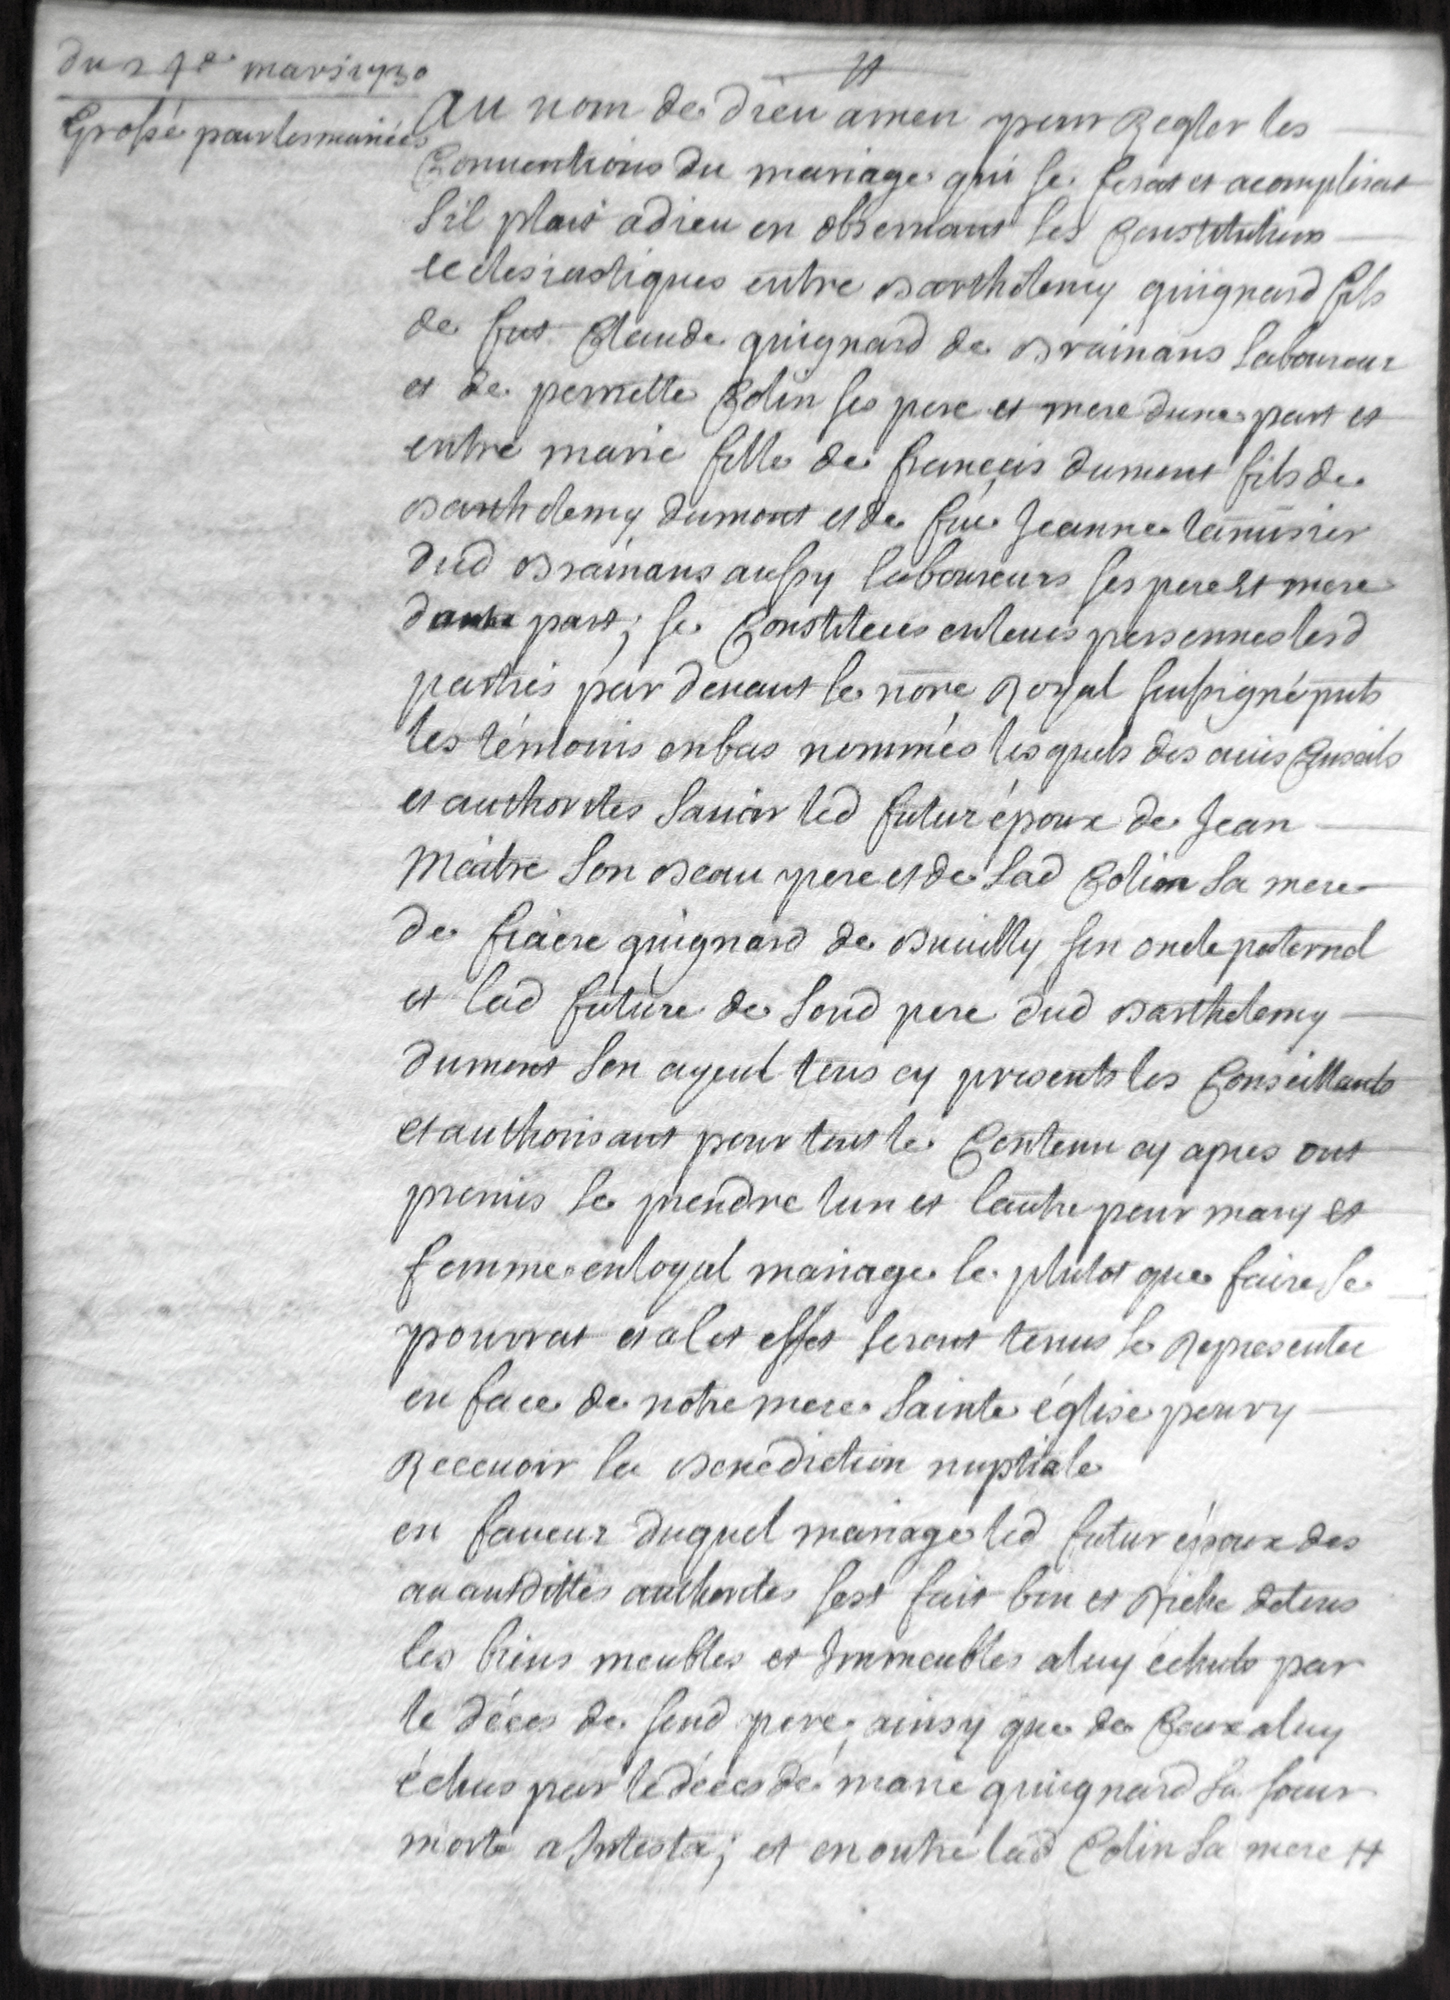 du 2 4e mars 1730
Grossé pour les mariés
Au nom de dieu amen pour Regler les
Conuentions du mariage qui se ferat et acomplirat
s'il plait a dieu en obseruant les Constitutions
ecclesiastiques entre Barthelemy guignard fils
de fut Claude guignard de Brainans laboureur
et de pernette Colin ses pere et mere dune part et
entre marie fille de françois dumont fils de
Barthelemy dumont et de füe Jeanne
dud Brainans aussy laboureurs ses pere et mere
dautre part; se Constituées en leurs personnes lesd
parties par deuant le nore Royal soussigné pnts
les témoins enbas nommés lesquels des auis Conseils
et authorites sauoir led futur époux de Jean
Maitre son Beau pere et de lad Colin sa mere
de fiacre guignard de Buuilly son oncle paternel
et lad future de sond pere dud Barthelemy
dumont son ayeul tous cy presents les Conseillants
et authorisant pour tout le Contenu cy apres ont
promis se prendre lun et lautre pour mary et
femme en loyal mariage le plutot que faire se
pourrat et a cet effet seront tenus se Representer
en face de notre mere sainte église pour y
Receuoir la Benediction nuptiale
en faueur duquel mariage led futur époux des
auantdittes authorites sest fait bon et Riche de tous
les biens meubles et Immeubles a luy échuts par
le décés de sond pere, ainsy que de Ceux a luy
échus par le déces de marie guignard sa soeur
morte a Intesta; et en outre lad Colin sa mere